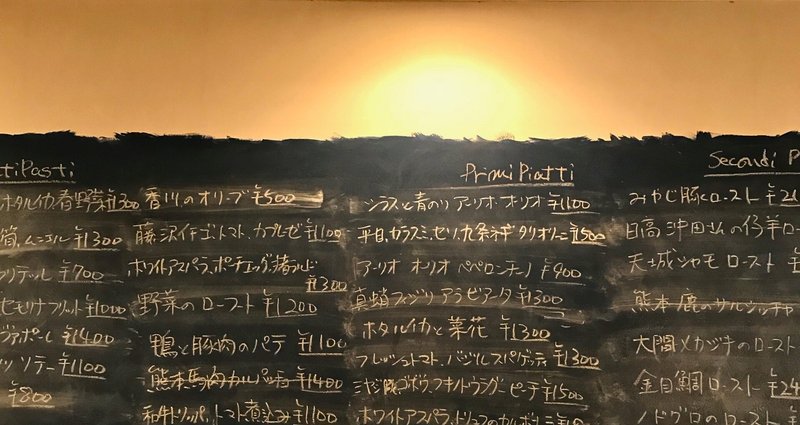 tiPasti
ホタルイカ春野菜 ¥1300
¥1300
¥700
セモリナフリット ¥1000
ヴァポーレ ¥1400
ソテー ¥1100
¥800
香川のオリーブ ¥500
藤沢イチゴ、トマト、カプレーゼ ¥1100
ホワイトアスパラ、ポーチエッグ、
¥1300
野菜のロースト ¥1200
鴨と豚肉のパテ ¥1100
熊本馬肉カルパッチョ ¥1400
和牛トリッパ、トマト煮込み ¥1100
Primi Piatti
シラスと青のりアーリオオーリオ ¥1100
平目、カラスミ、セリ、九条ネギタリオリーニ ¥1500
アーリオ オーリオ ペペロンチーノ ¥900
真蛸フジッリアラビアータ ¥1300
ホタルイカと菜花 ¥1300
フレッシュトマト、バジルスパゲッティ ¥1300
ゴボウ、フキノトウラグーピーチ ¥1500
ホワイトアスパラ、トリュフのカルボナーラ
Secondi P
みやじ豚ロースト
日高 仔羊ロー
天城シャモロースト
熊本鹿のサルシッチャ
大間メカジキのロースト
金目鯛ロースト ¥24
ノドグロのロースト